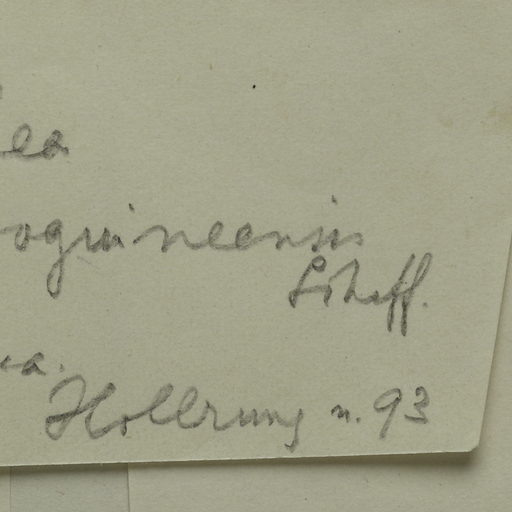 ea
oguineensis
Scheff.
ea.
Hollrung n. 93